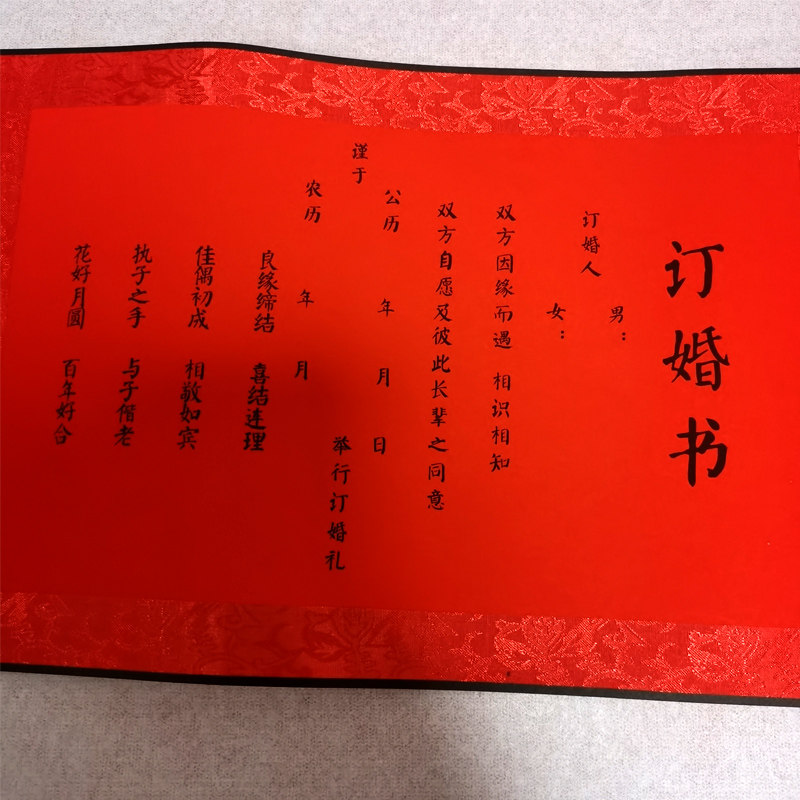 订婚书
订婚人 男：
女：
双方因缘而遇 相识相知
双方自愿及彼此长辈之同意
谨于
公历 年 月 日
农历 年 月
举行订婚礼
良缘缔结 喜结连理
佳偶初成 相敬如宾
执子之手 与子偕老
花好月圆 百年好合